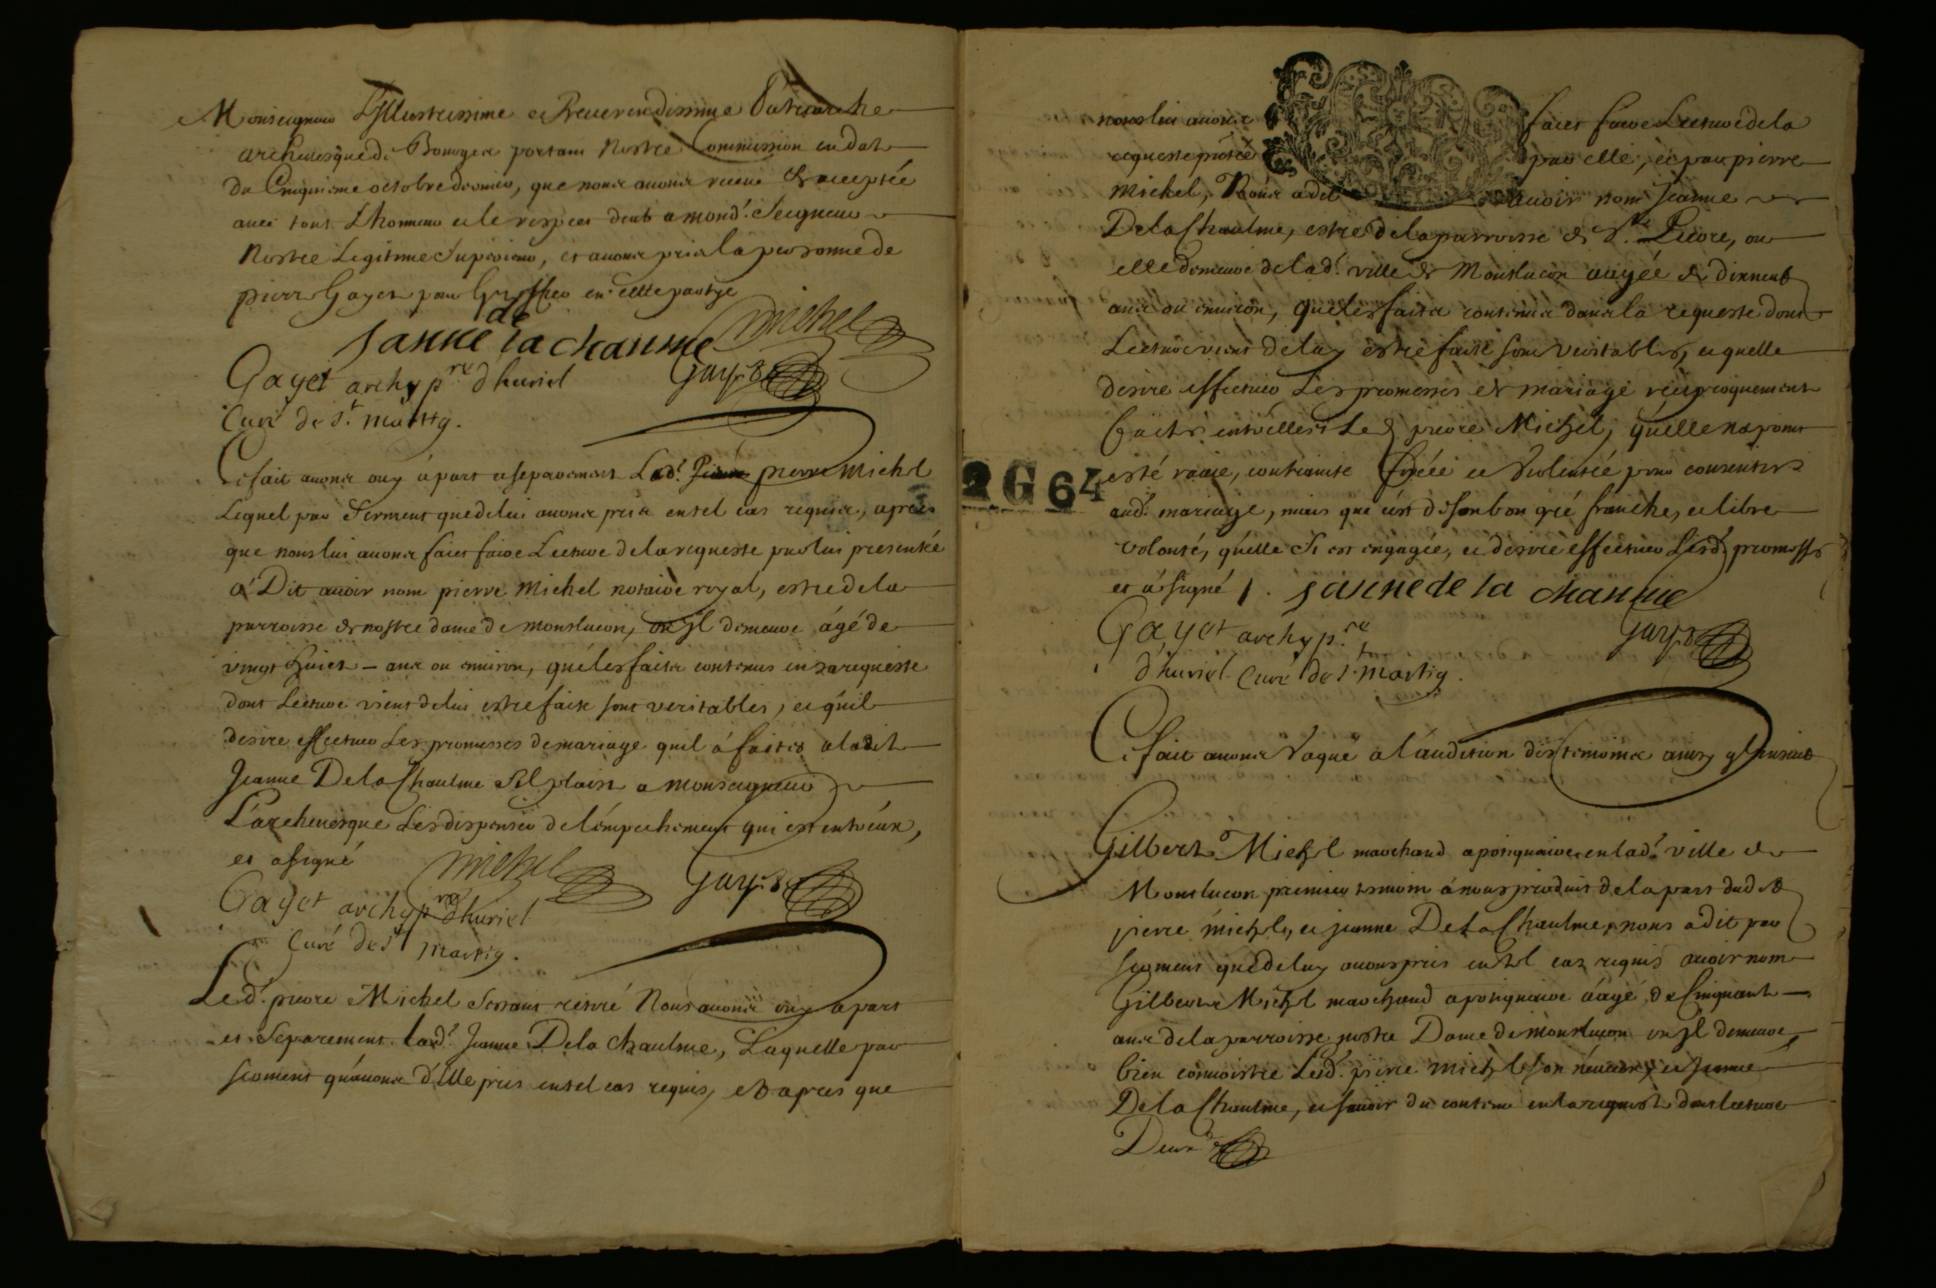 Monseigneur L'Illustrissime et Reverendissime Patriarche
archevesque de Bourges portant nostre Commission en date
du Cinquisme octobre dernier, que nous avons receue & acceptée
avec tout L'honneur et le respect deub a mond.t Seigneur
Nostre Legitime Superieur, et avons pris la personne de
pierre Gayet pour Greffier en cette partye
janne de la chaume michel
Gayet archyp.re d'huriel Gayet
Curé de S.t martig.
Ce fait avons ouy a part a separement Led.t pierre Michel
Lequel par Serment que de lui avons pris en tel cas requis, apres
que nous lui avons faict faire Lecture de la requeste par lui presentée
a Dit avoir nom pierre Michel notaire royal, estre de la
parroisse de nostre dame de monslucon, ou Jl demeure âgé de
vingt huict ans ou environ, que les faits contenus en sa requeste
dont Lecture vient de lui estre faite sont veritables, et qu'il
desire effectuer Les promesses de mariage qu'il a faites a ladite
Jeanne De la Chaulme S'il plaist a monseigneur
L'archevesque Les dispenser de l'empechement qui est entr'eux,
et a signé michel Gayet
Gayet archyp.re d'huriel
Curé de S.t martig.
Led.t pierre Michel s'estant retiré Nous avons ouy a part
et Separement lad.t Jeanne De la Chaulme, Laquelle par
serment qu'avons d'Elle pris en tel cas requis, et apres que
nous lui avons faict faire Lecture de la
requeste pntée par elle, et par pierre
Michel, Nous a dit avoir nom Jeanne
De la Chaulme, estre de la parroisse de S.t Pierre, ou
elle demeure de lad.t ville de Monslucon aagée de dixneuf
ans ou environ, que les faits contenus dans la requeste dont
Lecture vient de luy estre faite sont veritables, et qu'elle
desire effectuer Les promesses de mariage reciproquement
faites entr'elle et Led pierre Michel, qu'elle n'a point
esté ravie, contrainte forcée et Violentée pour consentir
aud.t mariage, mais que c'est de son bon gré franche, et libre
volonté, qu'elle s'i est engagée, et desire effectuer Lesd.t promesses
et a signé janne de la chaume
Gayet archyp.re Gayet
d'huriel Curé de S.t martig.
2G64
Ce fait avons Vaqué a l'audition des temoins ainsy qu'il ensuit
Gilbert Michel marchand apotiquaire en lad.t ville de
Monslucon premier temoin a nous produit de la part dud
pierre michel, et jeanne De la Chaulme, nous a dit par
serment que de luy avons pris en tel cas requis avoir nom
Gilbert Michel marchand apotiquaire aagé de Cinquante
ans de la parroisse nostre Dame de monslucon ou Jl demeure,
bien connoistre Led.t pierre michel son neveu et Jeanne
De la Chaulme, et savoir du contenu en la requeste dont lecture